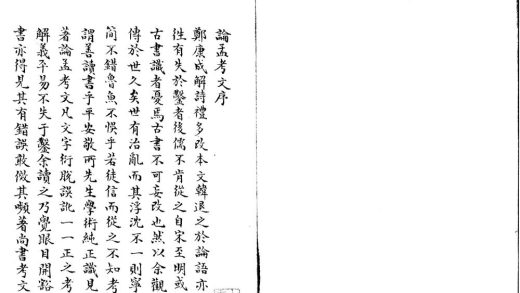 論孟考文序
鄭康成解詩禮多改本文韓退之於論語亦
徃有失於鑿者後儒不肯從之自宋至明或
古書識者憂焉古書不可妄改也然以余觀
傳於世久矣世有治亂而其浮沈不一則寧
简不錯魯魚不悞乎若徒信而從之不知考
謂善讀書乎平安敬所先生學術純正識見
著論孟考文凡文字衍脫誤訛一一正之考
解義平易不失于鑿余讀之乃覺眼目開豁
書亦得見其有錯誤敢倣其顰著尚書考文